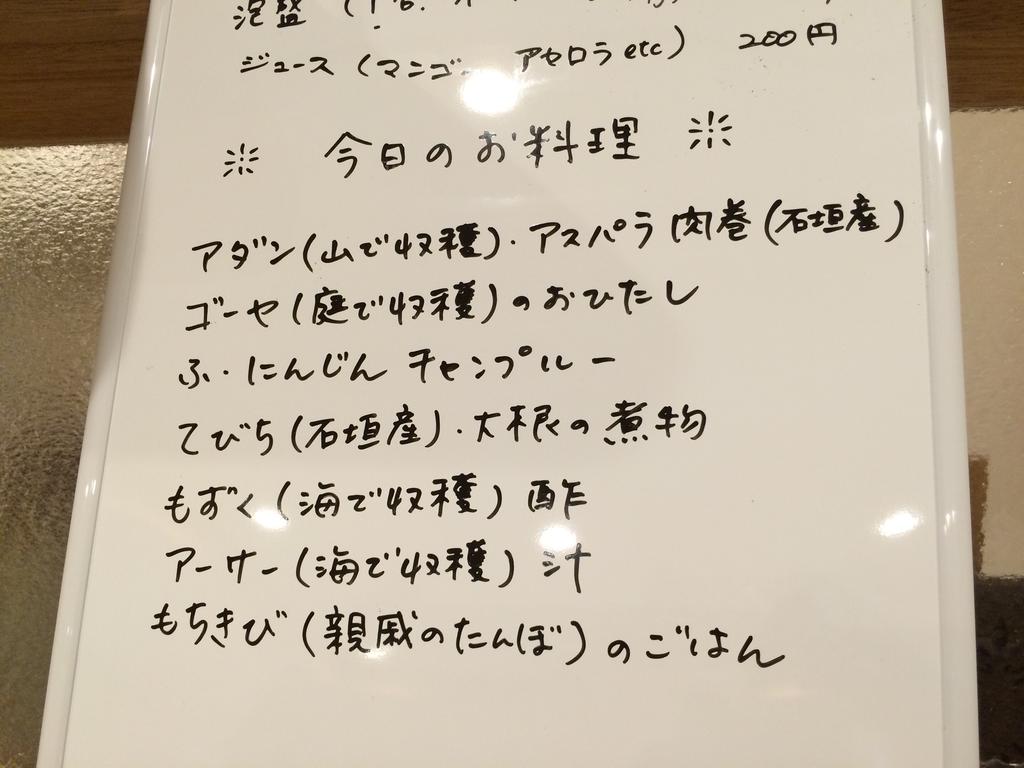 泡盛
ジュース (マンゴー アセロラ etc) 200円
※ 今日のお料理 ※
アダン(山で収穫)・アスパラ 肉巻(石垣産)
ゴーヤ(庭で収穫)のおひたし
ふ・にんじん チャンプルー
てびち(石垣産)・大根の煮物
もずく(海で収穫)酢
アーサー(海で収穫)汁
もちきび(親戚のたんぼ)のごはん